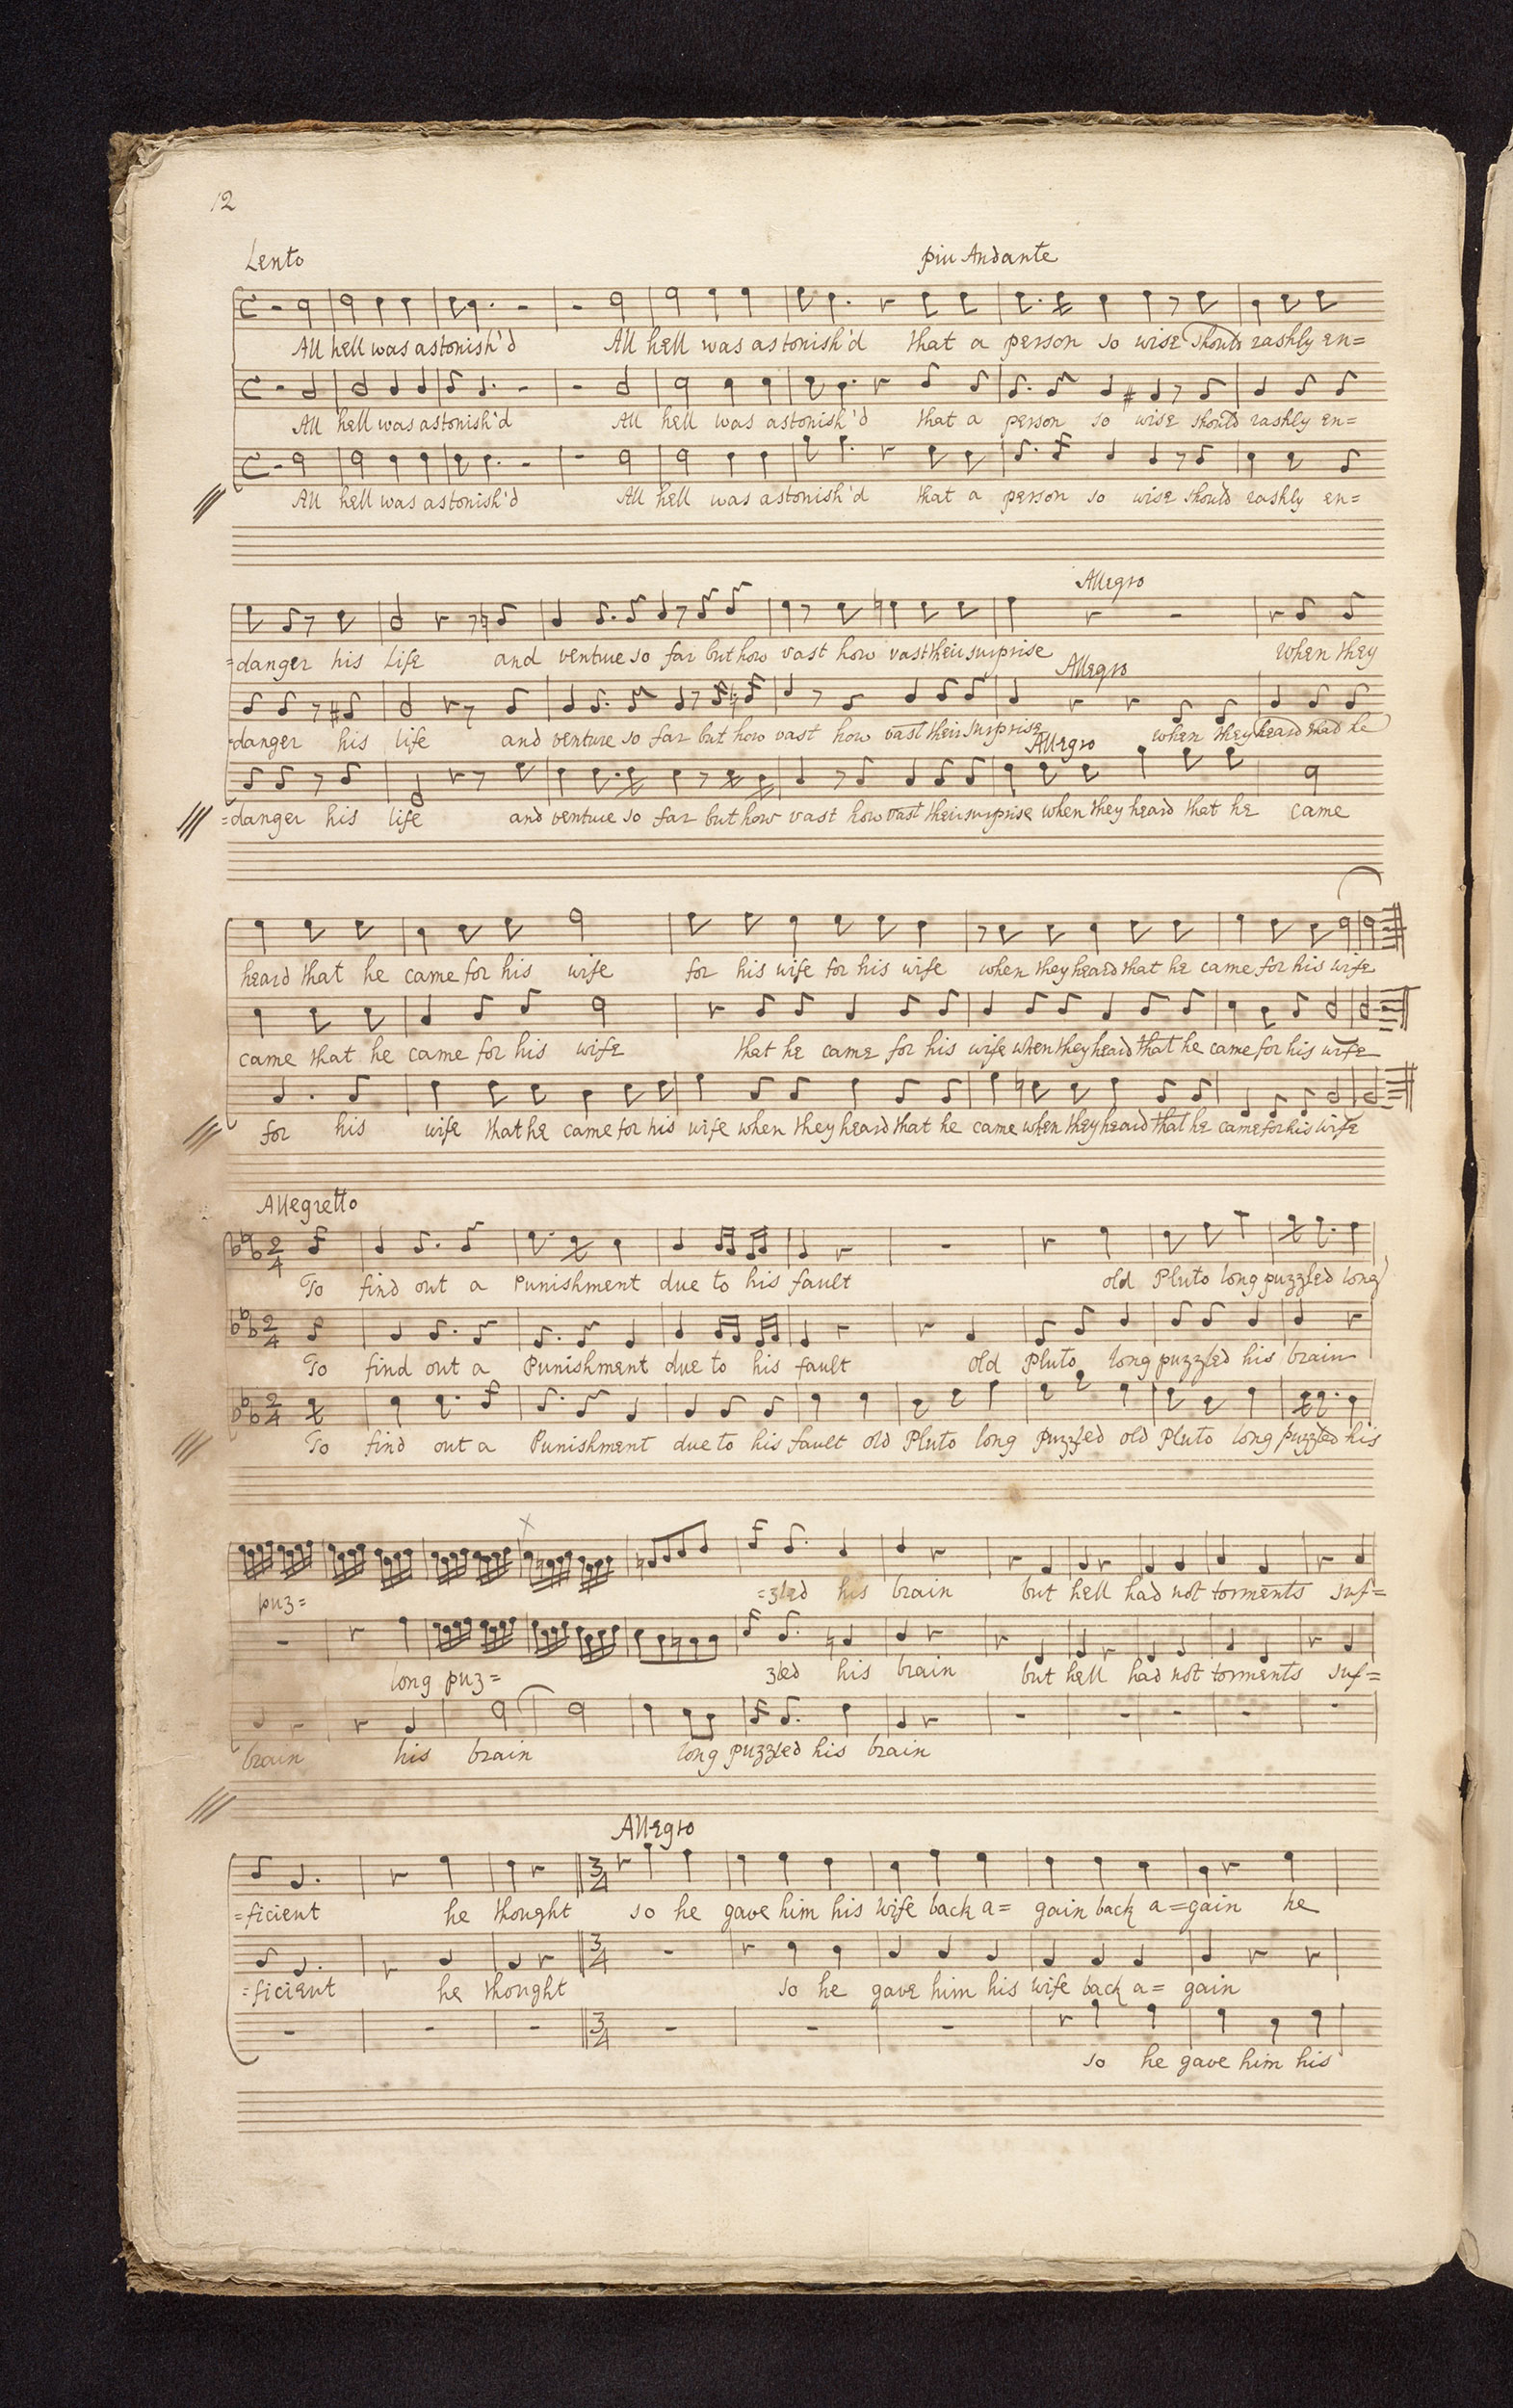 12
Lento
piu Andante
All hell was astonish'd All hell was astonish'd that a person so wise should rashly en=
All hell was astonish'd All hell was astonish'd that a person so wise should rashly en=
All hell was astonish'd All hell was astonish'd that a person so wise should rashly en=
Allegro
=danger his Life and venture so far but how vast how vast their surprise when they
Allegro
=danger his life and venture so far but how vast how vast their surprise when they heard that he
Allegro
=danger his life and venture so far but how vast how vast their surprise when they heard that he came
heard that he came for his wife for his wife for his wife when they heard that he came for his wife
came that he came for his wife that he came for his wife when they heard that he came for his wife
for his wife that he came for his wife when they heard that he came when they heard that he came for his wife
Allegretto
2/4
To find out a Punishment due to his fault old Pluto long puzzled long
2/4
To find out a Punishment due to his fault old Pluto long puzzled his brain
2/4
To find out a Punishment due to his fault old Pluto long puzzled old Pluto long puzzled his
x
puz= =zled his brain but hell had not torments suf=
long puz= zled his brain but hell had not torments suf=
brain his brain long puzzled his brain
Allegro
3/4
=ficient he thought so he gave him his wife back a= gain back a=gain he
3/4
=ficient he thought so he gave him his wife back a= gain
3/4
so he gave him his